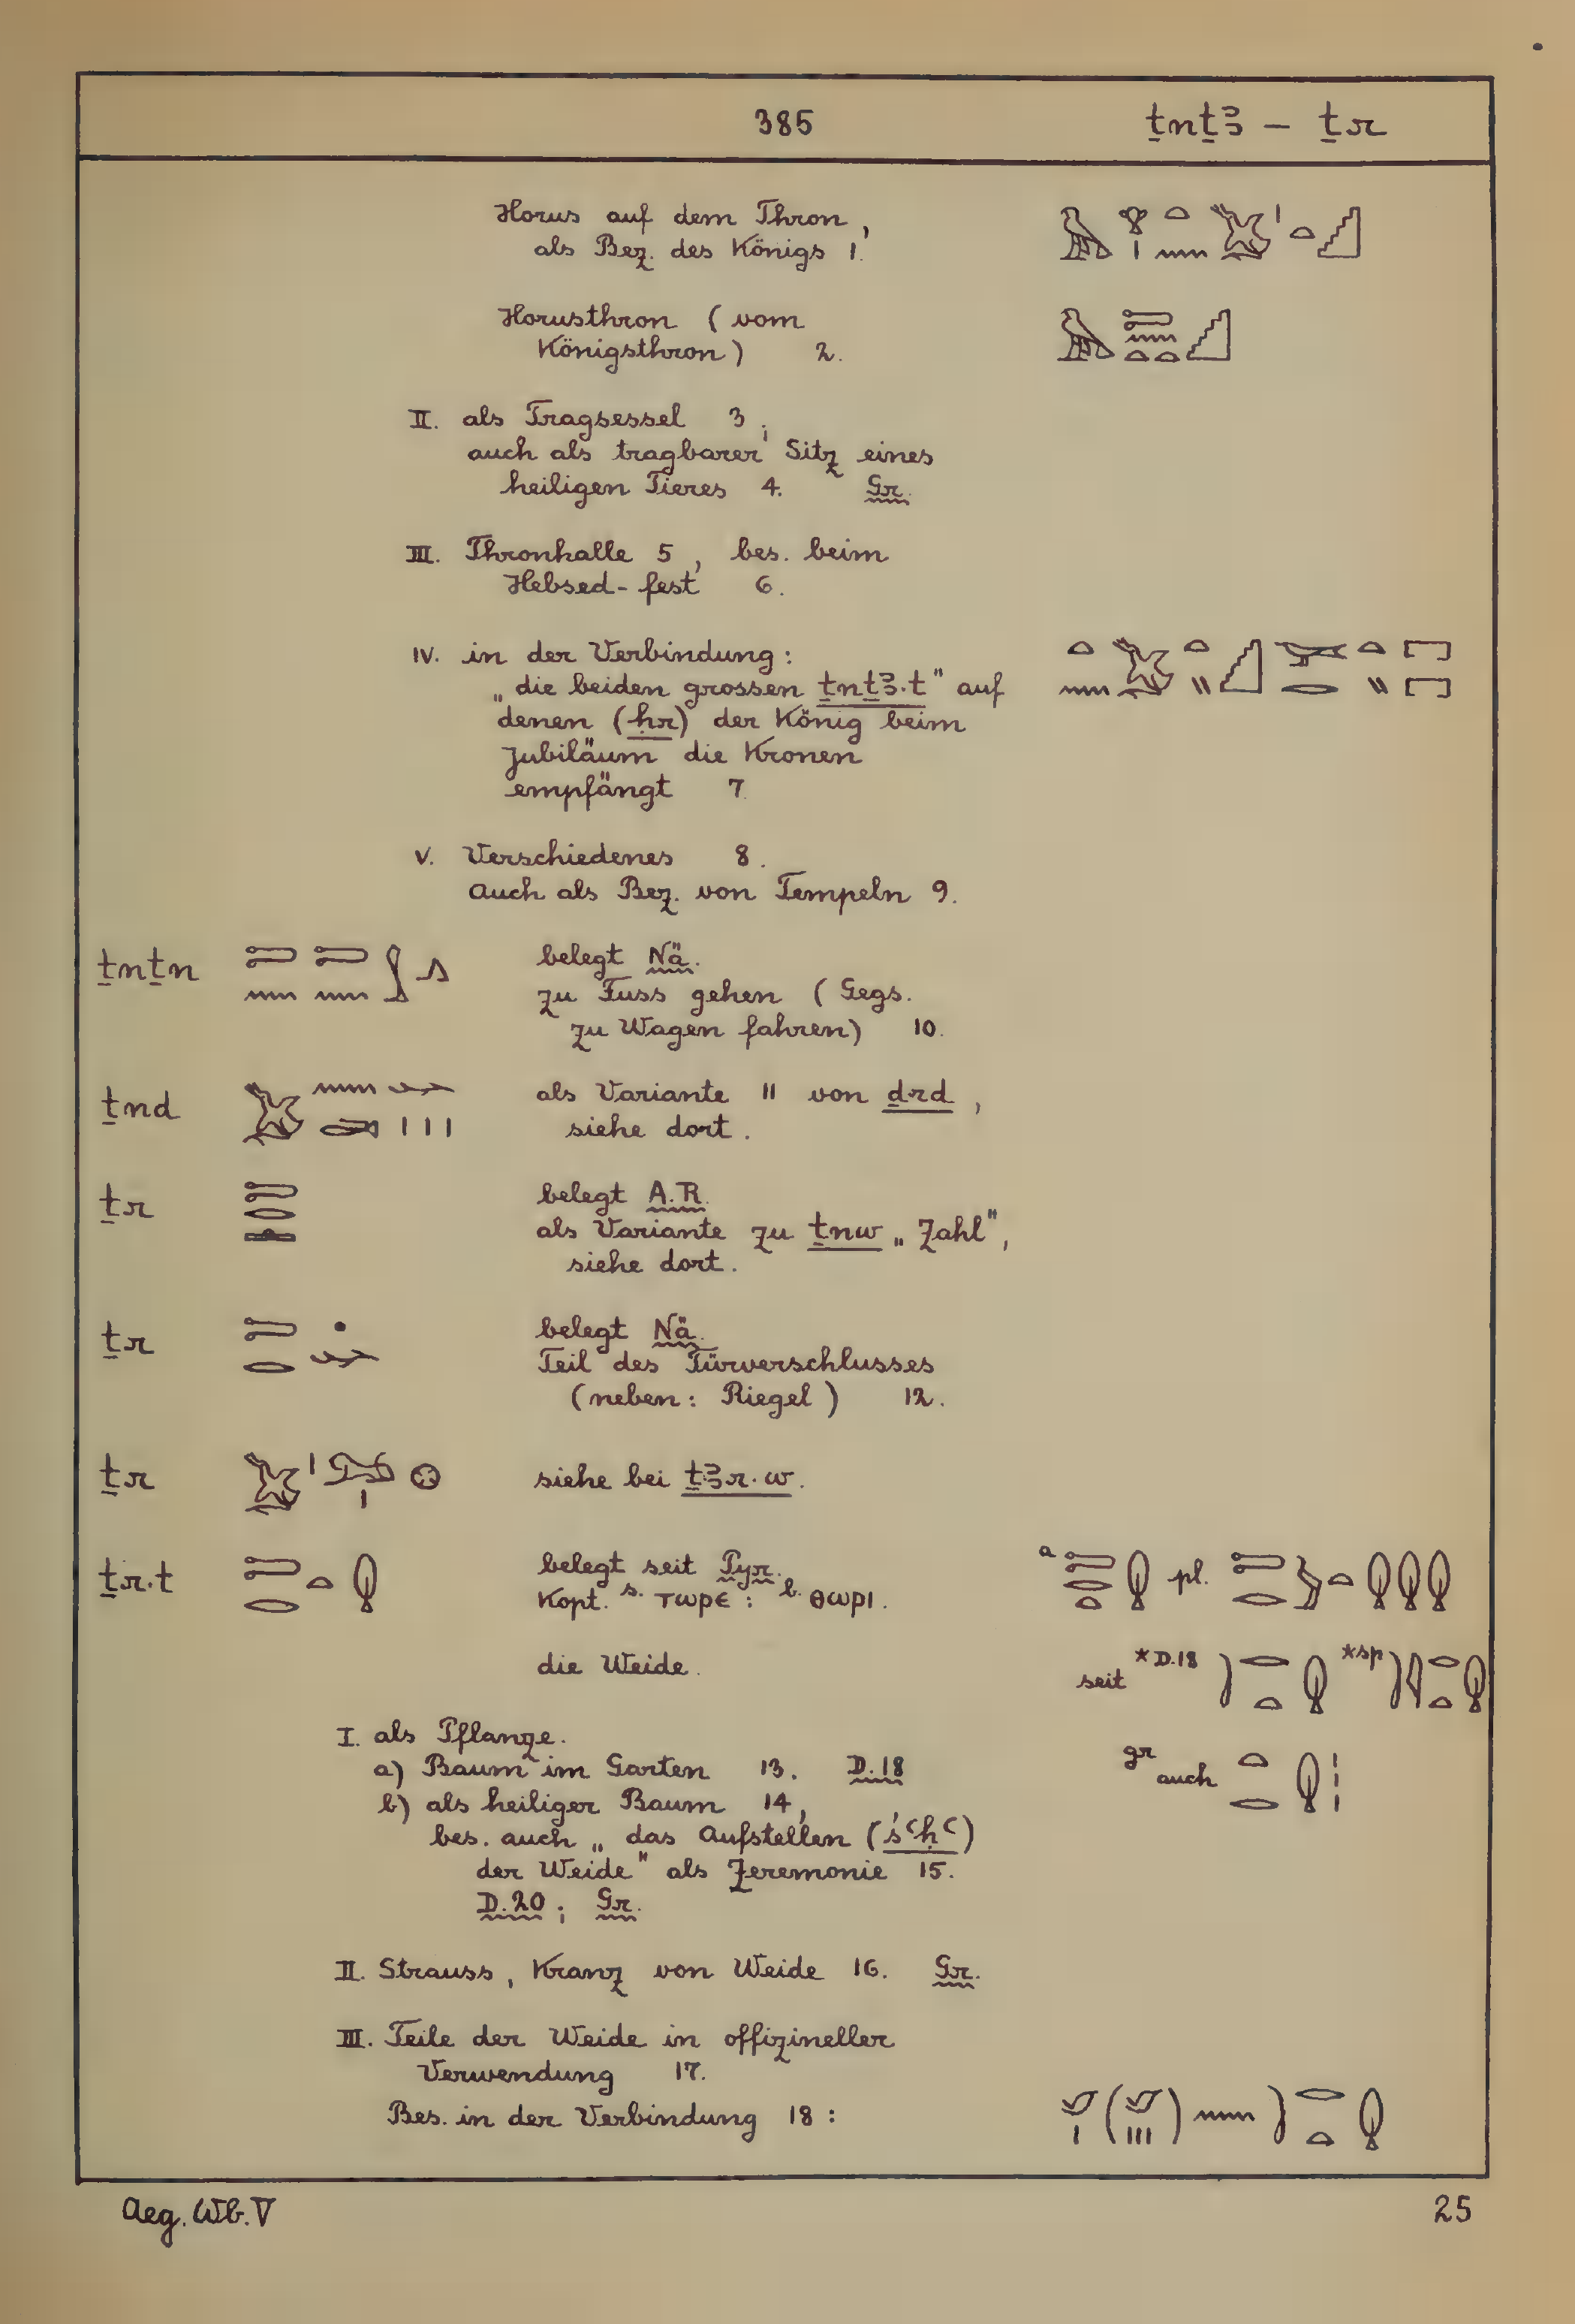 385 ṯnṯꜣ – ṯr
Horus auf dem Thron,
als Bez. des Königs 1.
Horusthron (vom
Königsthron) 2.
II. als Tragsessel 3;
auch als tragbarer Sitz eines
heiligen Tieres 4. Gr.
III. Thronhalle 5, bes. beim
Hebsed-fest 6.
IV. in der Verbindung:
„die beiden grossen ṯnṯꜣ.t" auf
denen (ḥr) der König beim
Jubiläum die Kronen
empfängt 7
V. Verschiedenes 8.
Auch als Bez. von Tempeln 9.
ṯnṯn belegt Nä.
zu Fuss gehen (Gegs.
zu Wagen fahren) 10.
ṯnd als Variante 11 von ḏrd,
siehe dort.
ṯr belegt A.R.
als Variante zu ṯnw „Zahl",
siehe dort.
ṯr belegt Nä.
Teil des Türverschlusses
(neben: Riegel) 12.
ṯr siehe bei ṯꜣr.w.
ṯr.t belegt seit Pyr. a pl.
Kopt. s. ⲧⲱⲣⲉ: b. ⲑⲱⲣⲓ.
die Weide. seit *D.18 *sp
I. als Pflanze.
a) Baum im Garten 13. D.18 gr auch
b) als heiliger Baum 14,
bes. auch „das Aufstellen (śꜥḥꜥ)
der Weide" als Zeremonie 15.
D.20; Gr.
II. Strauss, Kranz von Weide 16. Gr.
III. Teile der Weide in offizineller
Verwendung 17.
Bes. in der Verbindung 18:
Aeg. Wb. V 25